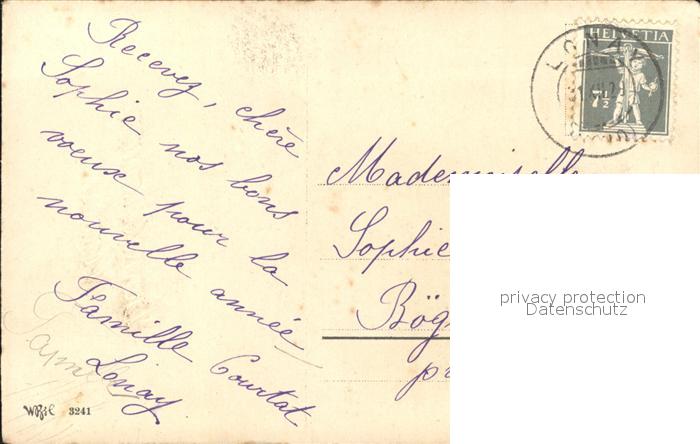 Recevez, chère
Sophie nos bons
voeux pour la
nouvelle année
Famille Courtat
Lonay.
W.R.B.&C. 3241
HELVETIA
7½
LONAY
Mademoiselle
Sophie
Bög
privacy protection
Datenschutz